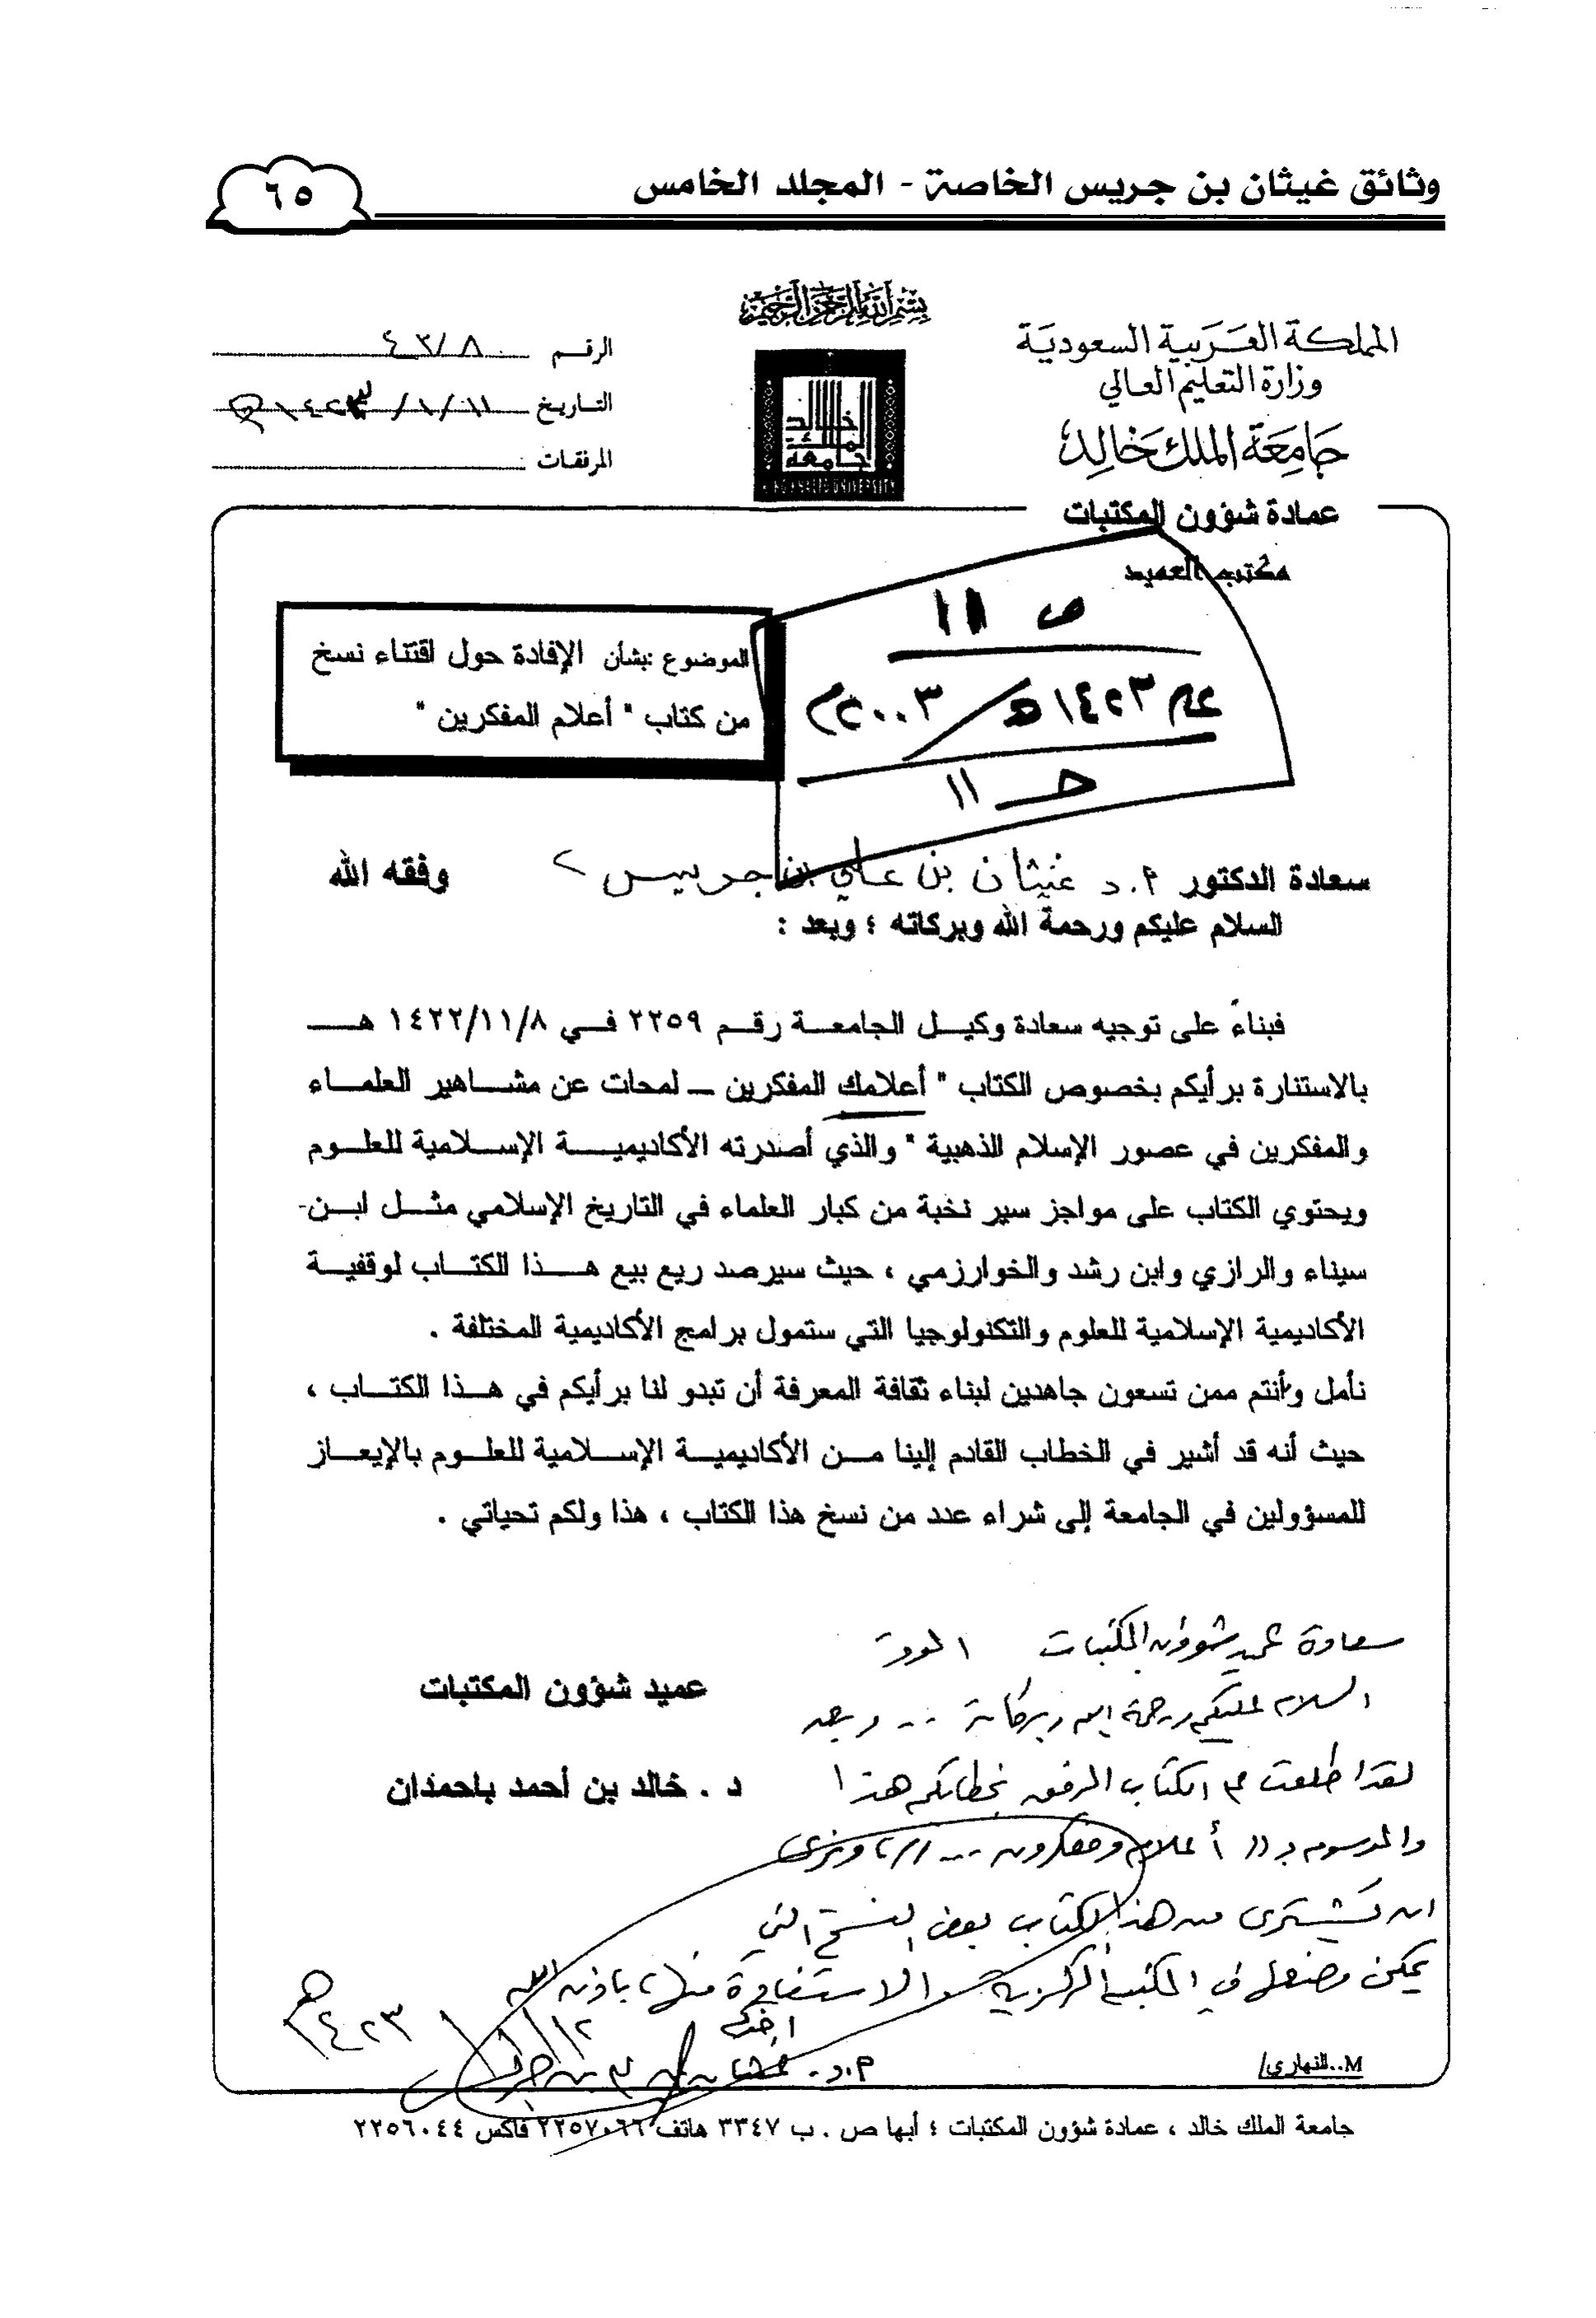 وثائق غيثان بن جريس الخاصة - المجلد الخامس
٦٥
بسم الله الرحمن الرحيم
المملكة العربية السعودية
وزارة التعليم العالي
جامعة الملك خالد
عمادة شؤون المكتبات
مكتب العميد
جامعة الملك خالد
KING KHALID UNIVERSITY
الرقم ٤٣/٨
التاريخ ١١/١/١٤٢٣هـ
المرفقات
ص ١١
عام ١٤٢٣هـ/٢٠٠٣م
حـ ١١
الموضوع :بشأن الإفادة حول اقتناء نسخ
من كتاب " أعلام المفكرين "
سعادة الدكتور أ.د غيثان بن علي بن جريس وفقه الله
السلام عليكم ورحمة الله وبركاته ؛ وبعد :
فبناءً على توجيه سعادة وكيل الجامعة رقم ٢٢٥٩ في ١٤٢٢/١١/٨ هـ
بالاستنارة برأيكم بخصوص الكتاب " أعلامك المفكرين – لمحات عن مشاهير العلماء
والمفكرين في عصور الإسلام الذهبية " والذي أصدرته الأكاديمية الإسلامية للعلوم
ويحتوي الكتاب على مواجز سير نخبة من كبار العلماء في التاريخ الإسلامي مثل ابن-
سيناء والرازي وابن رشد والخوارزمي ، حيث سيرصد ريع بيع هذا الكتاب لوقفية
الأكاديمية الإسلامية للعلوم والتكنولوجيا التي ستمول برامج الأكاديمية المختلفة .
نأمل وأنتم ممن تسعون جاهدين لبناء ثقافة المعرفة أن تبدو لنا برأيكم في هذا الكتاب ،
حيث أنه قد أشير في الخطاب القادم إلينا من الأكاديمية الإسلامية للعلوم بالإيعاز
للمسؤولين في الجامعة إلى شراء عدد من نسخ هذا الكتاب ، هذا ولكم تحياتي .
عميد شؤون المكتبات
د . خالد بن أحمد باحمدان
سعادة عميد شؤون المكتبات الموقر
السلام عليكم ورحمة الله وبركاته ... وبعد
لقد اطلعت على الكتاب المرفق بخطابكم هذا
والموسوم بـ (( أعلام ومفكرون ... )) ، ونرى
أن تشترى من هذا الكتاب بعض النسخ التي
يمكن وضعها في المكتبة المركزية والاستفادة منها ، بإذن الله
أخوكم
أ.د. غيثان بن علي بن جريس
١٢/١/١٤٢٣هـ
M..النهاري/
جامعة الملك خالد ، عمادة شؤون المكتبات ؛ أبها ص . ب ٣٣٤٧ هاتف ٢٢٥٧٠٦٦ فاكس ٢٢٥٦٠٤٤